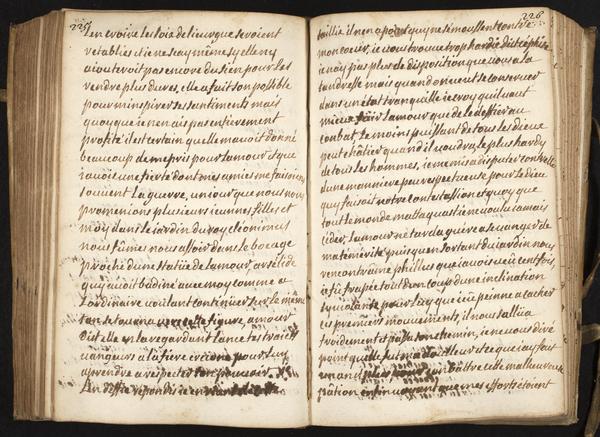 225
len croire les lois de lieurgue seroient
retablis et ie ne scay mêmes sy elle ny
aiouteroit pas encore du sien pour les
rendre plus dures, elle a fait son possible
pour m'inspirer ses sentiments mais
quoy que ie n'en ais pas entierement
profité il est certain quelle mauoit donné
beaucoup de mepris pour lamour et que
iauois une fierté dont mes amies me faisoient
souuent la guerre, un iour que nous nous
promenions plusieurs ieunnes filles et
moy dans le iardin du roy, et comme
nous fûmes nous assoir dans le bocage
proche dune statüe de lamour,
qui auoit badiné auec moy comme a
lordinaire voulant continuer sur le même
ton se tourna vers cette figure, amour
dit elle en la regardant lance tes traits
uangeurs a la fiere pour luy
aprendre a respecter ton pouuoir,
ie
226
taillie il n'en a point quy ne s'emoussent contre
mon coeur, ie vous trouue trop hardie dit
ie n'ay pas plus de disposition que vous a la
tendresse mais quand on veut se conseruer
dans un état tranquille ie croy quil uaut
mieux fair lamour que de le deffier au
conbat, le moins puissant de tous les dieux
peut chatier quand il voudra le plus hardy
de tous les hommes, ie me mis a disputer contre elle
dune manniere peu respectueuse pour le dieu
quy faisoit notre contestassion et quoy que
tout le monde mattaquast ie ne voulu iamais
ceder, lamour ne tarda guere a se uanger de
ma temerité puis quen sortant du iardin nous
rencontrame phillus que iauois ueü cent fois,
ie fû frapée tout d'un coup dune inclination
sy uiolante pour luy que ieü penne a cacher
ces premiers mouuements, il nous salüa
froidement et passa son chemin, ie ne vous diré
point quelle fut ma douleur et ce que iay fait
en uain pour conbâtre cette malheureuse
passion enfin uoyant que mes efforts étoient